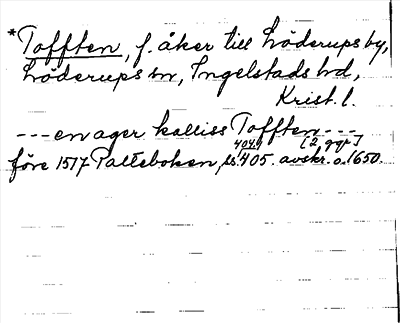 *Tofften, f. åker till Löderups by,
Löderups sn, Ingelstads hd,
Krist. l.
---en ager kalliss Tofften---
404.1 [2 ggr]
före 1517 Palteboken, s. 405. avskr. o. 1650.